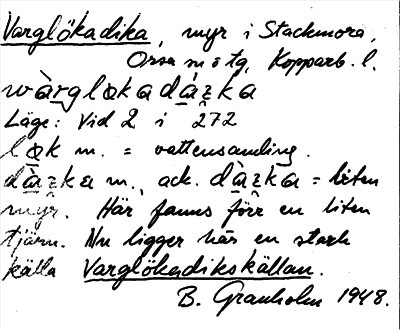 Varglökadika, myr i Stackmora,
Orsa s o tg, Kopparb. l.
wàrgløkadàzka
Läge: Vid 2 i 272
løk m. = vattensamling.
dàzka m., ack. dàzka = liten
myr. Här fanns förr en liten
tjärn. Nu ligger här en stark
källa Varglökadikskällan.
B. Granholm 1948.